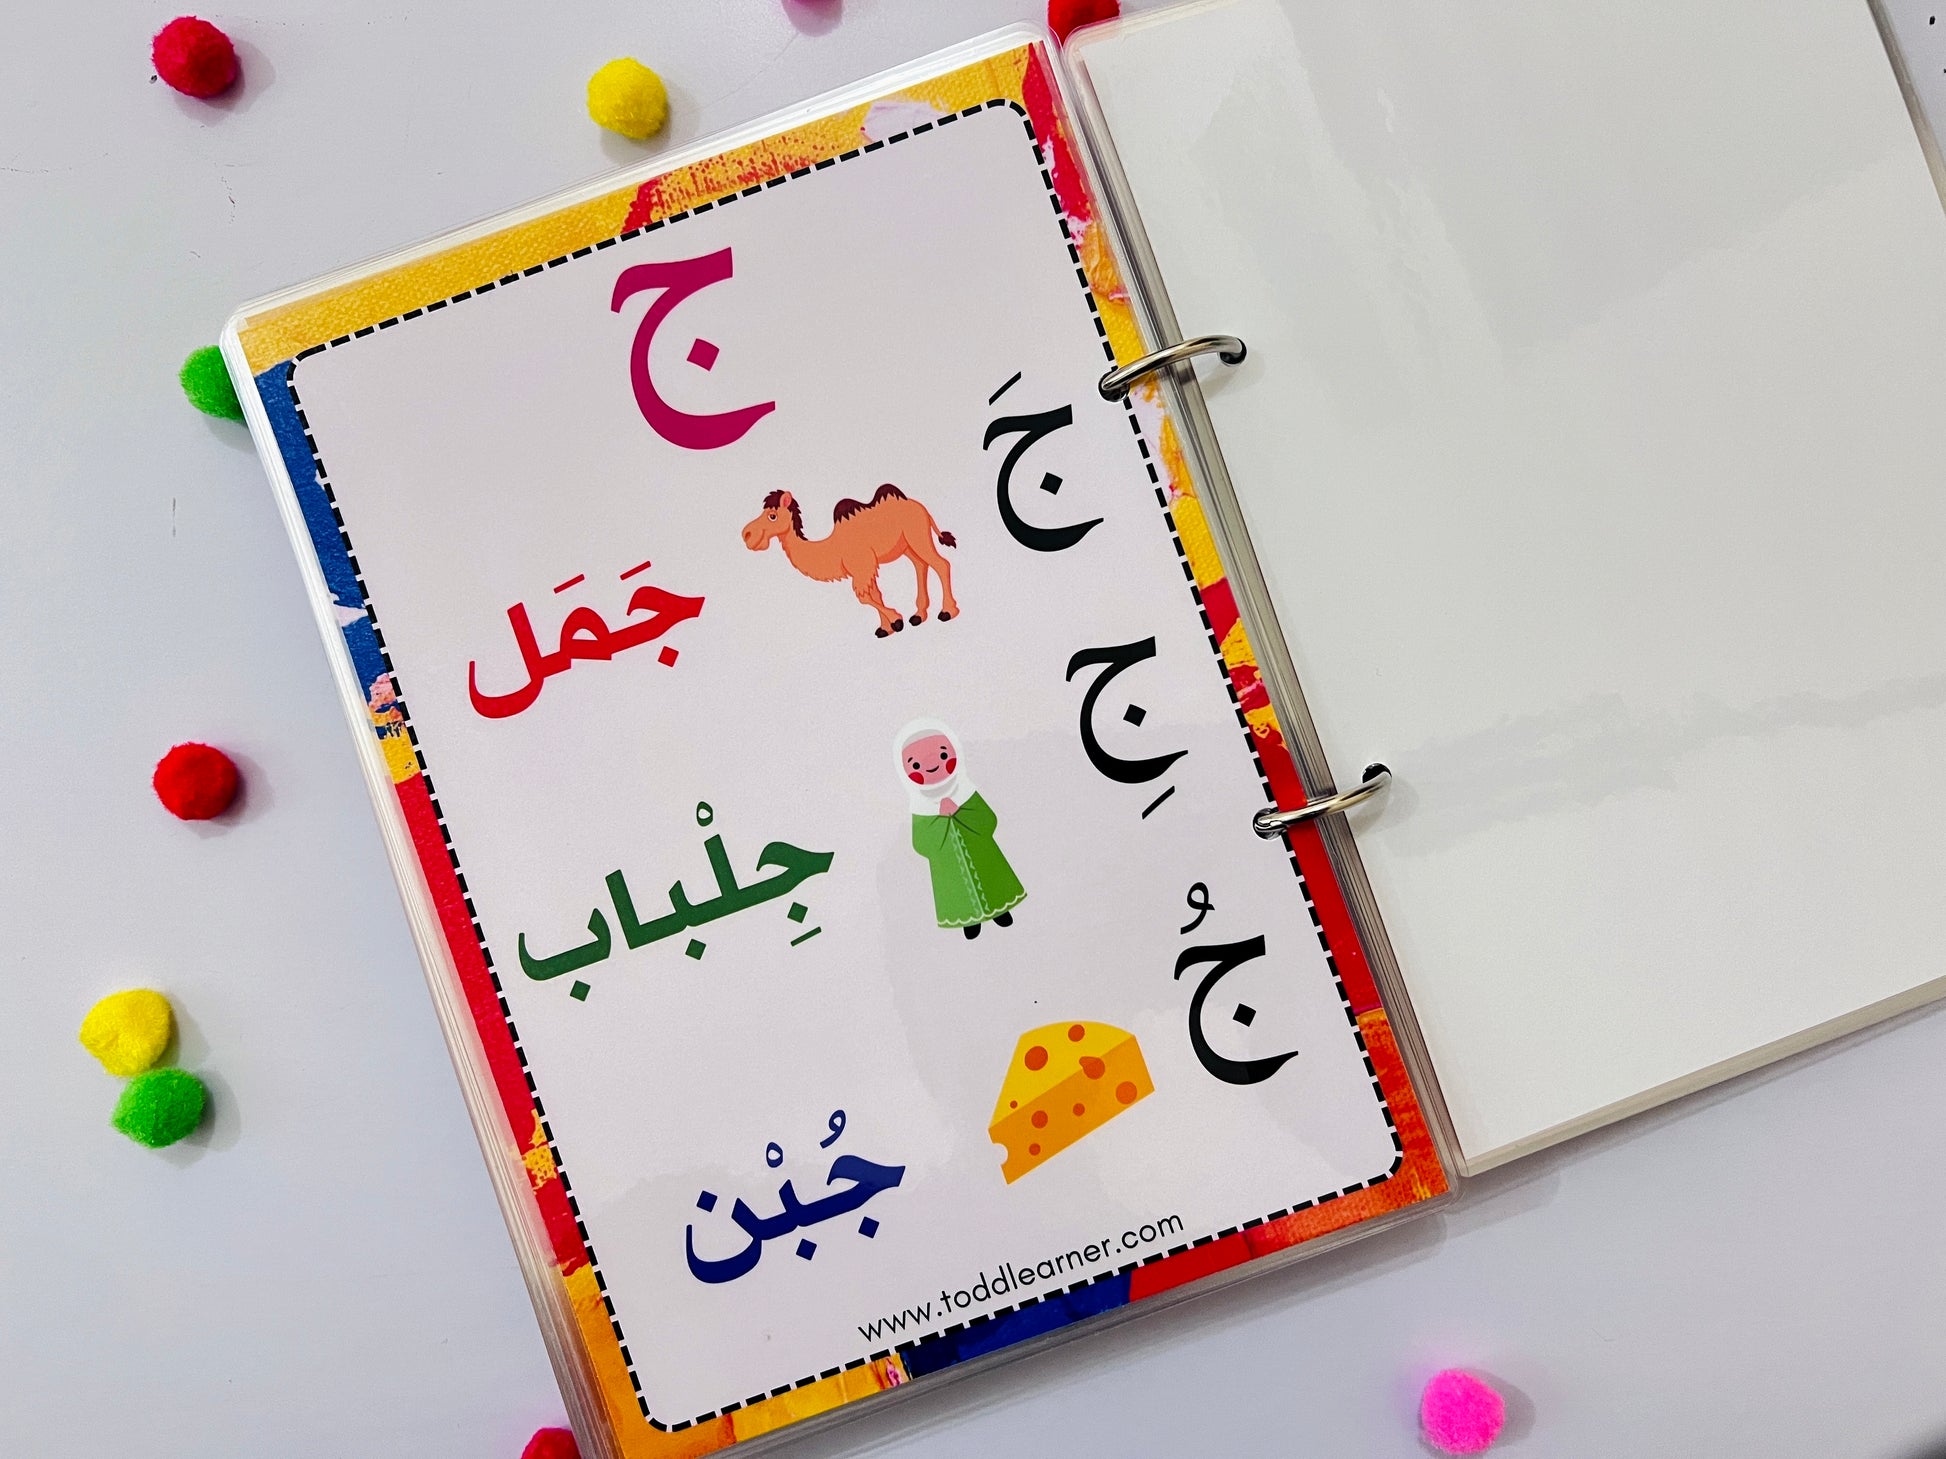 ج
جَ
جَمَل
جِ
جِلْباب
جُ
جُبْن
www.toddlearner.com